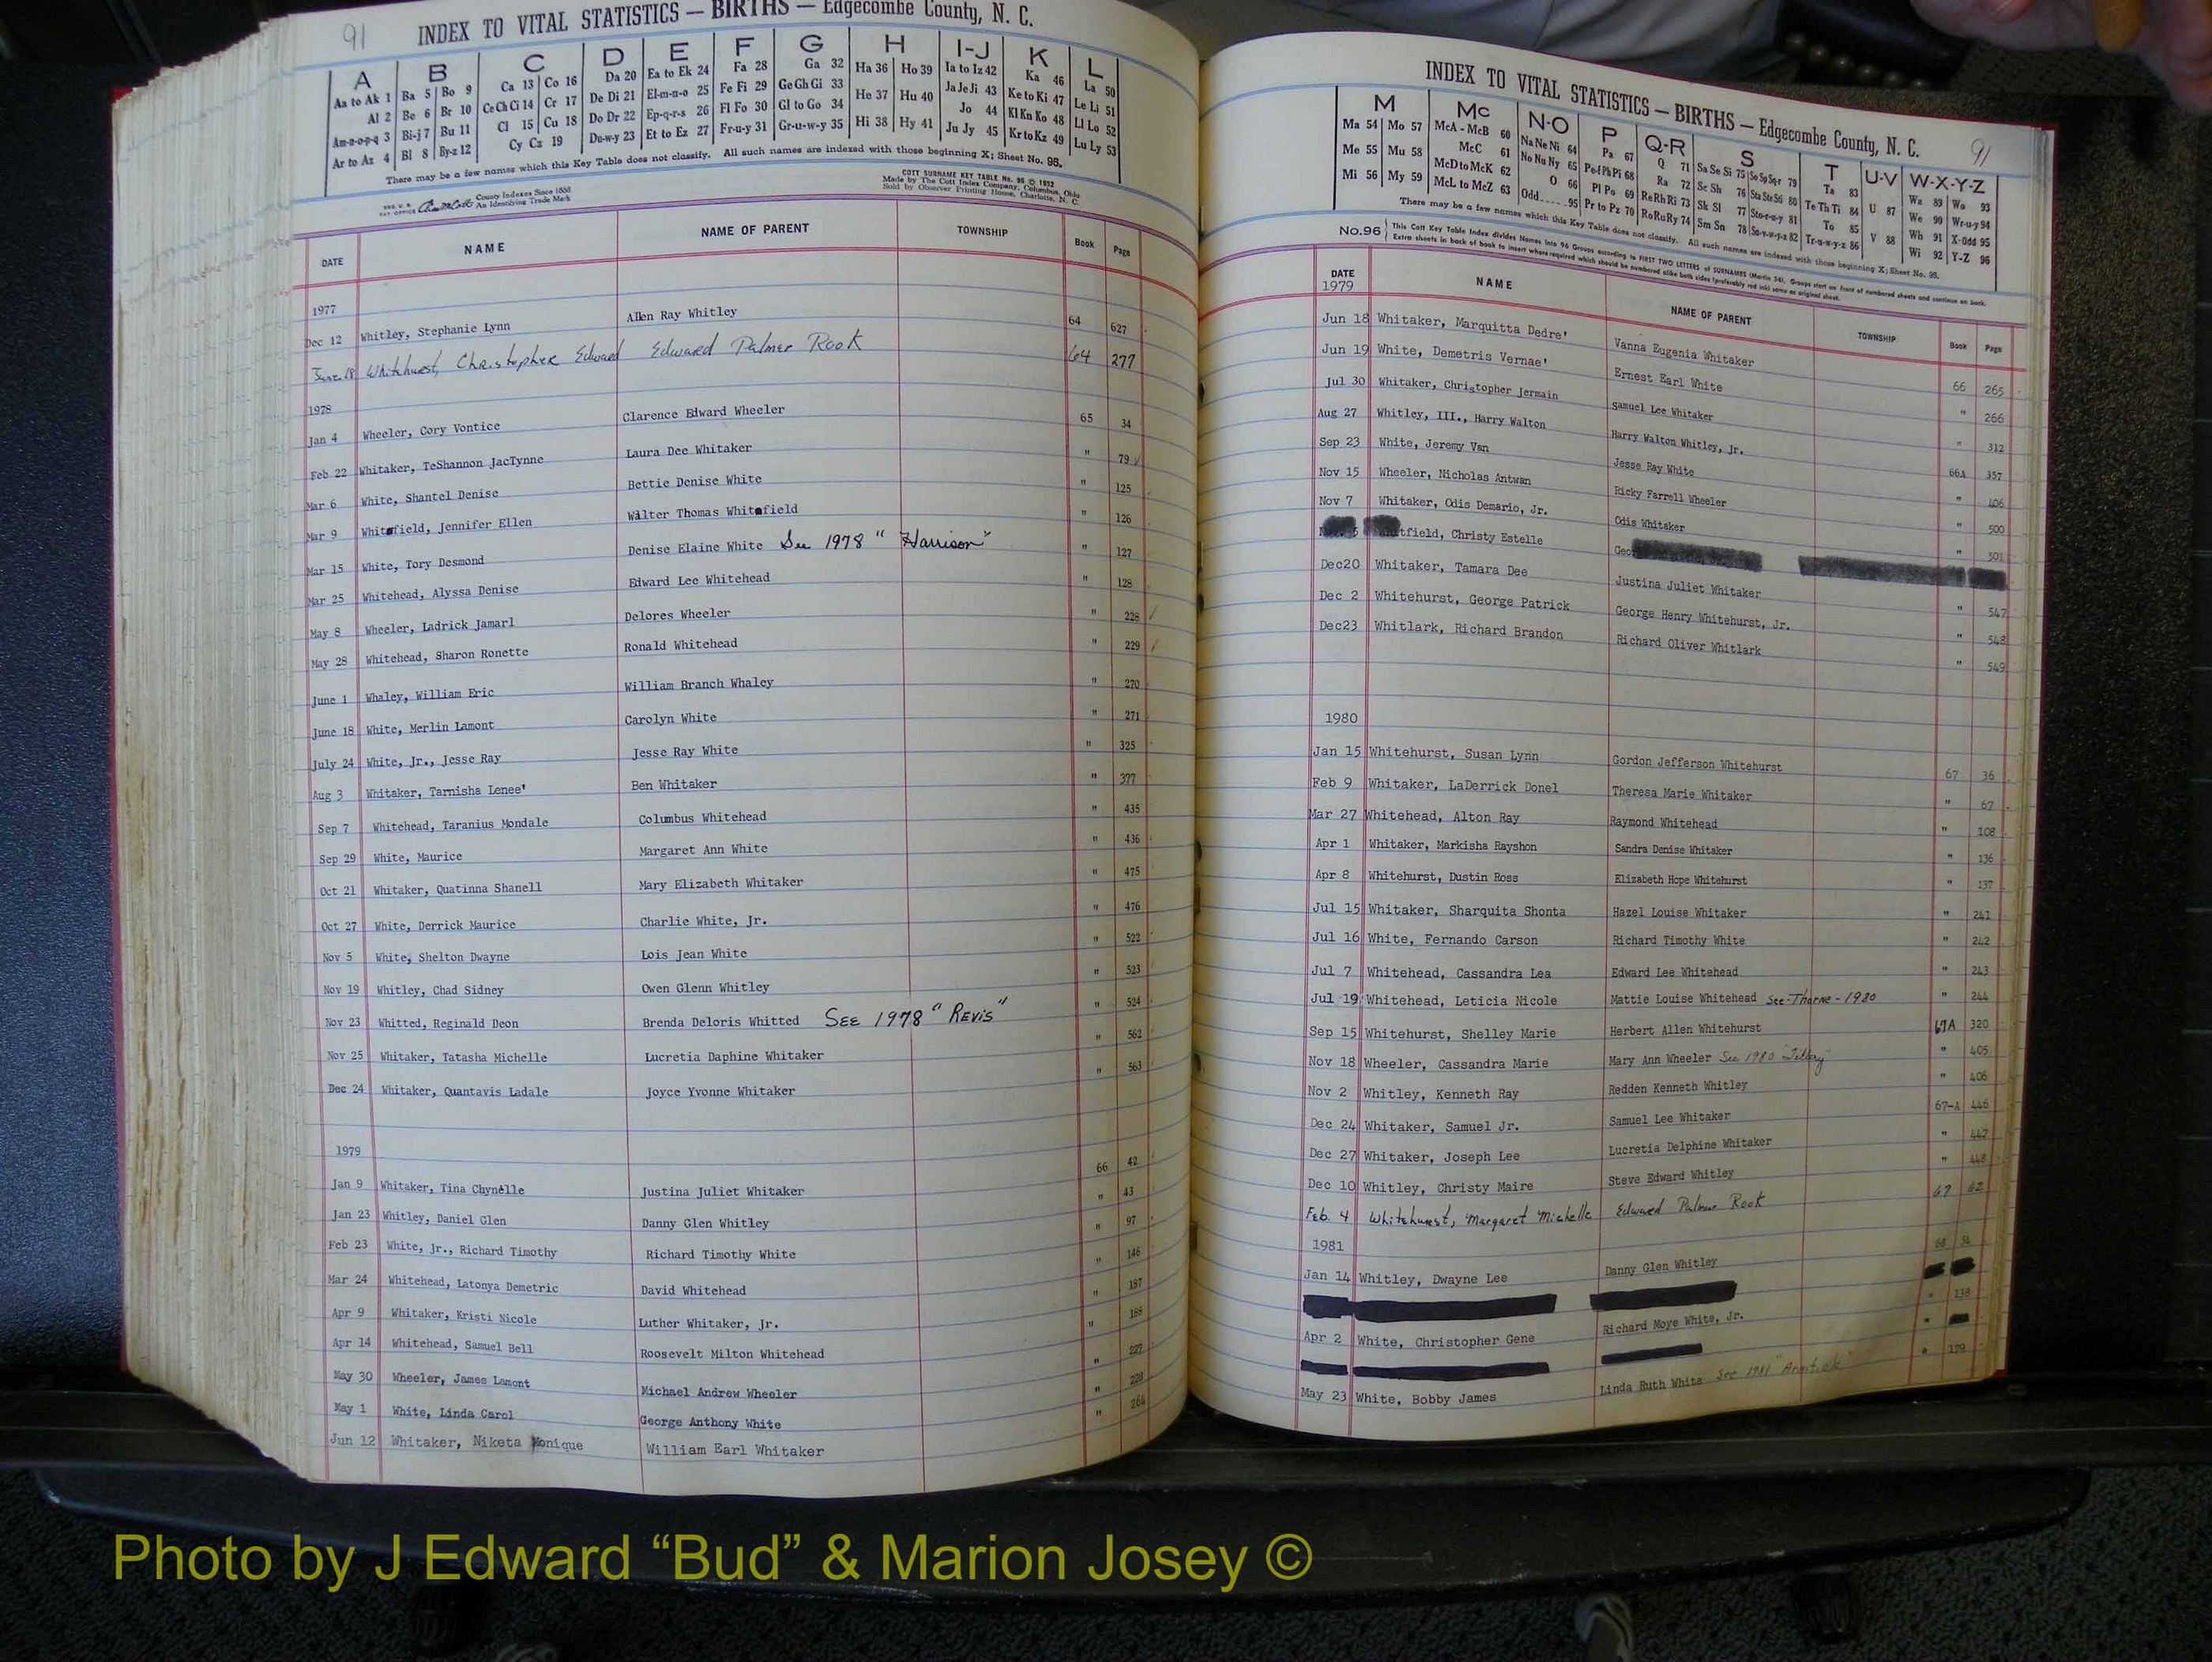 91 INDEX TO VITAL STATISTICS — BIRTHS — Edgecombe County, N. C.
A B C D E F G H I-J K L
Aa to Ak 1 Ba 5 Bo 9 Ca 13 Co 16 Da 20 Ea to Ek 24 Fa 28 Ga 32 Ha 36 Ho 39 Ia to Iz 42 Ka 46 La 50
Al 2 Be 6 Br 10 Ce Ch Ci 14 Cr 17 De Di 21 El-m-n-o 25 Fe Fi 29 Ge Gh Gi 33 He 37 Hu 40 Ja Je Ji 43 Ke to Ki 47 Le Li 51
Am-n-o-p-q 3 Bi-j 7 Bu 11 Cl 15 Cu 18 Do Dr 22 Ep-q-r-s 26 Fl Fo 30 Gl to Go 34 Hi 38 Hy 41 Jo 44 Kl Kn Ko 48 Ll Lo 52
Ar to Az 4 Bl 8 By-z 12 Cy Cz 19 Du-w-y 23 Et to Ez 27 Fr-u-y 31 Gr-u-w-y 35 Ju Jy 45 Kr to Kz 49 Lu Ly 53
There may be a few names which this Key Table does not classify. All such names are indexed with those beginning X; Sheet No. 95.
County Indexes Since 1888
An Identifying Trade Mark
COTT SURNAME KEY TABLE No. 96 © 1952
Made by The Cott Index Company, Columbus, Ohio
Sold by Observer Printing House, Charlotte, N. C.
DATE NAME NAME OF PARENT TOWNSHIP Book Page
1977
Dec 12 Whitley, Stephanie Lynn Allen Ray Whitley 64 627
June 18 Whitehurst, Christopher Edward Edward Palmer Rook 64 277
1978
Jan 4 Wheeler, Cory Vontice Clarence Edward Wheeler 65 34
Feb 22 Whitaker, TeShannon JacTynne Laura Dee Whitaker " 79
Mar 6 White, Shantel Denise Bettie Denise White " 125
Mar 9 Whitefield, Jennifer Ellen Walter Thomas Whitefield " 126
Mar 15 White, Tory Desmond Denise Elaine White See 1978 "Harrison" " 127
Mar 25 Whitehead, Alyssa Denise Edward Lee Whitehead " 128
May 8 Wheeler, Ladrick Jamarl Delores Wheeler " 228
May 28 Whitehead, Sharon Ronette Ronald Whitehead " 229
June 1 Whaley, William Eric William Branch Whaley " 270
June 18 White, Merlin Lamont Carolyn White " 271
July 24 White, Jr., Jesse Ray Jesse Ray White " 325
Aug 3 Whitaker, Tarnisha Lenee' Ben Whitaker " 377
Sep 7 Whitehead, Taranius Mondale Columbus Whitehead " 435
Sep 29 White, Maurice Margaret Ann White " 436
Oct 21 Whitaker, Quatinna Shanell Mary Elizabeth Whitaker " 475
Oct 27 White, Derrick Maurice Charlie White, Jr. " 476
Nov 5 White, Shelton Dwayne Lois Jean White " 522
Nov 19 Whitley, Chad Sidney Owen Glenn Whitley " 523
Nov 23 Whitted, Reginald Deon Brenda Deloris Whitted SEE 1978 "REVIS" " 524
Nov 25 Whitaker, Tatasha Michelle Lucretia Daphine Whitaker " 562
Dec 24 Whitaker, Quantavis Ladale Joyce Yvonne Whitaker " 563
1979
Jan 9 Whitaker, Tina Chynelle Justina Juliet Whitaker 66 42
Jan 23 Whitley, Daniel Glen Danny Glen Whitley " 43
Feb 23 White, Jr., Richard Timothy Richard Timothy White " 97
Mar 24 Whitehead, Latonya Demetric David Whitehead " 146
Apr 9 Whitaker, Kristi Nicole Luther Whitaker, Jr. " 187
Apr 14 Whitehead, Samuel Bell Roosevelt Milton Whitehead " 188
May 30 Wheeler, James Lamont Michael Andrew Wheeler " 227
May 1 White, Linda Carol George Anthony White " 228
Jun 12 Whitaker, Niketa Monique William Earl Whitaker " 264
INDEX TO VITAL STATISTICS — BIRTHS — Edgecombe County, N. C. 91
M Mc N-O P Q-R S T U-V W-X-Y-Z
Ma 54 Mo 57 McA - McB 60 Na Ne Ni 64 Pa 67 Q 71 Sa Se Si 75 So Sp Sq-r 79 Ta 83 U 87 Wa 89 Wo 93
Me 55 Mu 58 McC 61 No Nu Ny 65 Pe-f Ph Pi 68 Ra 72 Sc Sh 76 Sta Ste Sti 80 Te Th Ti 84 V 88 We 90 Wr-u-y 94
Mi 56 My 59 McD to McK 62 O 66 Pl Po 69 Re Rh Ri 73 Sk Sl 77 Sto-r-u-y 81 To 85 Wh 91 X-Odd 95
McL to McZ 63 Odd 95 Pr to Pz 70 Ro Ru Ry 74 Sm Sn 78 Su-v-w-y-z 82 Tr-u-w-y-z 86 Wi 92 Y-Z 96
There may be a few names which this Key Table does not classify. All such names are indexed with those beginning X; Sheet No. 95.
No. 96 This Cott Key Table Index divides Names into 96 Groups according to FIRST TWO LETTERS of SURNAMES (Martin 54). Groups start on front of numbered sheets and continue on back.
Extra sheets in back of book to insert where required which should be numbered alike both sides (preferably red ink) same as original sheet.
DATE NAME NAME OF PARENT TOWNSHIP Book Page
1979
Jun 18 Whitaker, Marquitta Dedre' Vanna Eugenia Whitaker 66 265
Jun 19 White, Demetris Vernae' Ernest Earl White " 266
Jul 30 Whitaker, Christopher Jermain Samuel Lee Whitaker " 312
Aug 27 Whitley, III., Harry Walton Harry Walton Whitley, Jr. 66A 357
Sep 23 White, Jeremy Van Jesse Ray White " 406
Nov 15 Wheeler, Nicholas Antwan Ricky Farrell Wheeler " 500
Nov 7 Whitaker, Odis Demario, Jr. Odis Whitaker " 501
5 tfield, Christy Estelle Geo
Dec20 Whitaker, Tamara Dee Justina Juliet Whitaker " 547
Dec 2 Whitehurst, George Patrick George Henry Whitehurst, Jr. " 548
Dec23 Whitlark, Richard Brandon Richard Oliver Whitlark " 549
1980
Jan 15 Whitehurst, Susan Lynn Gordon Jefferson Whitehurst 67 36
Feb 9 Whitaker, LaDerrick Donel Theresa Marie Whitaker " 67
Mar 27 Whitehead, Alton Ray Raymond Whitehead " 108
Apr 1 Whitaker, Markisha Rayshon Sandra Denise Whitaker " 136
Apr 8 Whitehurst, Dustin Ross Elizabeth Hope Whitehurst " 137
Jul 15 Whitaker, Sharquita Shonta Hazel Louise Whitaker " 241
Jul 16 White, Fernando Carson Richard Timothy White " 242
Jul 7 Whitehead, Cassandra Lea Edward Lee Whitehead " 243
Jul 19 Whitehead, Leticia Nicole Mattie Louise Whitehead See-Thorne-1980 " 244
Sep 15 Whitehurst, Shelley Marie Herbert Allen Whitehurst 67A 320
Nov 18 Wheeler, Cassandra Marie Mary Ann Wheeler See 1980 "Tillery" " 405
Nov 2 Whitley, Kenneth Ray Redden Kenneth Whitley " 406
Dec 24 Whitaker, Samuel Jr. Samuel Lee Whitaker 67-A 446
Dec 27 Whitaker, Joseph Lee Lucretia Delphine Whitaker " 447
Dec 10 Whitley, Christy Maire Steve Edward Whitley " 448
Feb. 4 Whitehurst, Margaret Michelle Edward Palmer Rook 67 62
1981
Jan 14 Whitley, Dwayne Lee Danny Glen Whitley 68 34
Apr 2 White, Christopher Gene Richard Moye White, Jr. " 138
May 23 White, Bobby James Linda Ruth White See 1981 " 179
Photo by J Edward “Bud” & Marion Josey ©